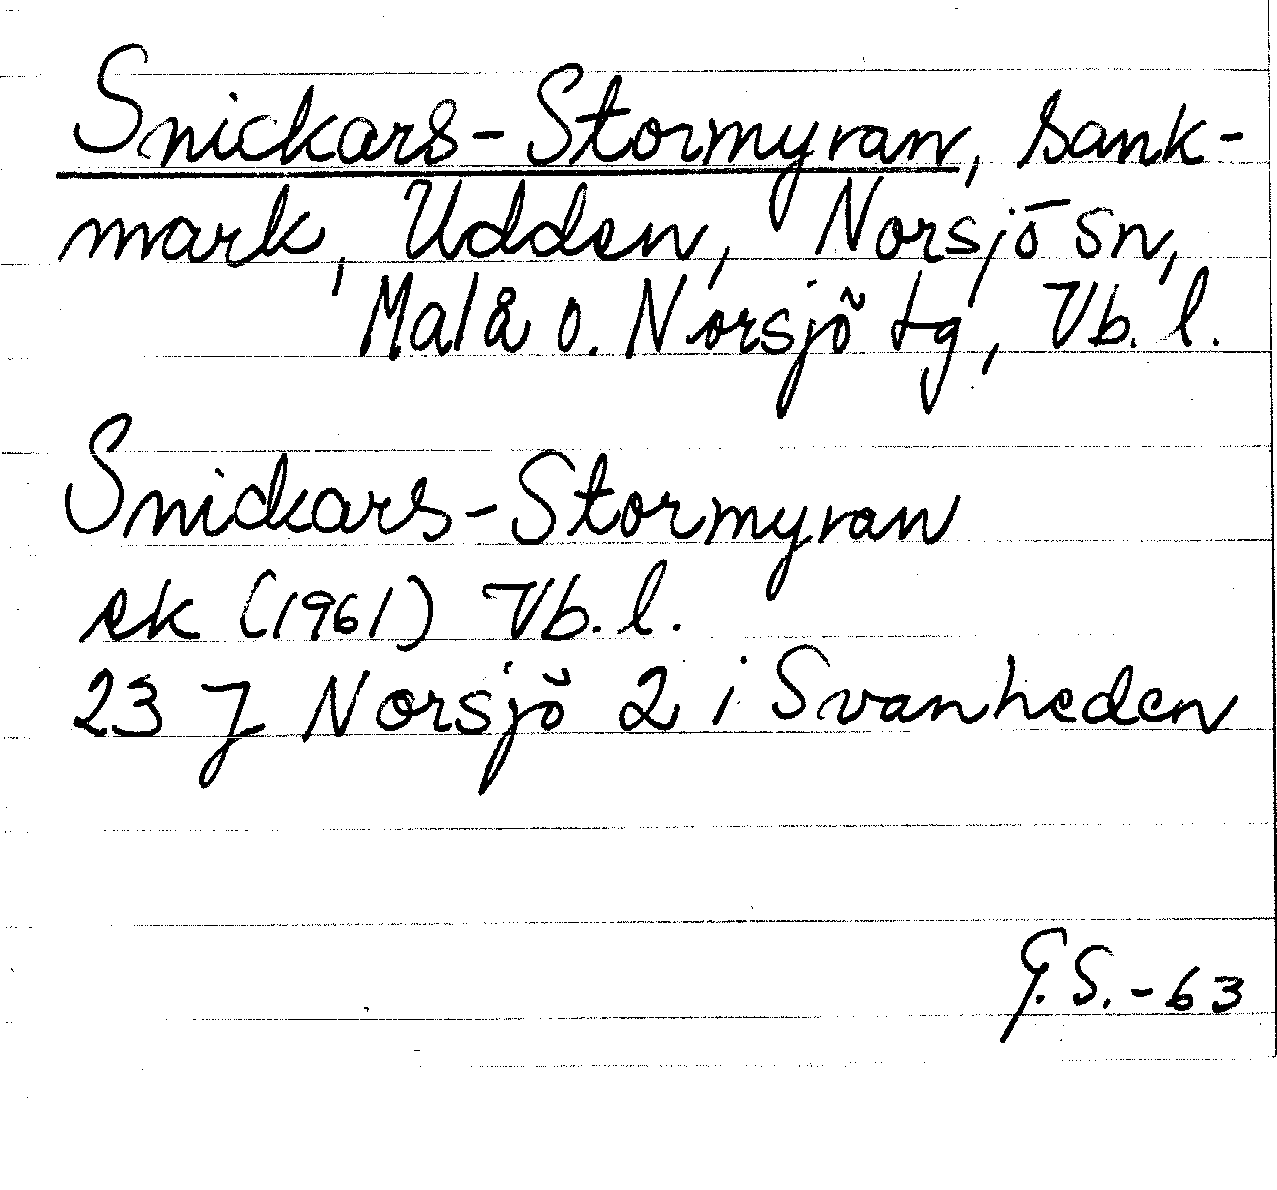 Snickars-Stormyran, sank-
mark, Udden, Norsjö sn,
Malå o. Norsjö tg, Vb. l.
Snickars-Stormyran
ek (1961) Vb. l.
23 J Norsjö 2 i Svanheden
G. S. -63